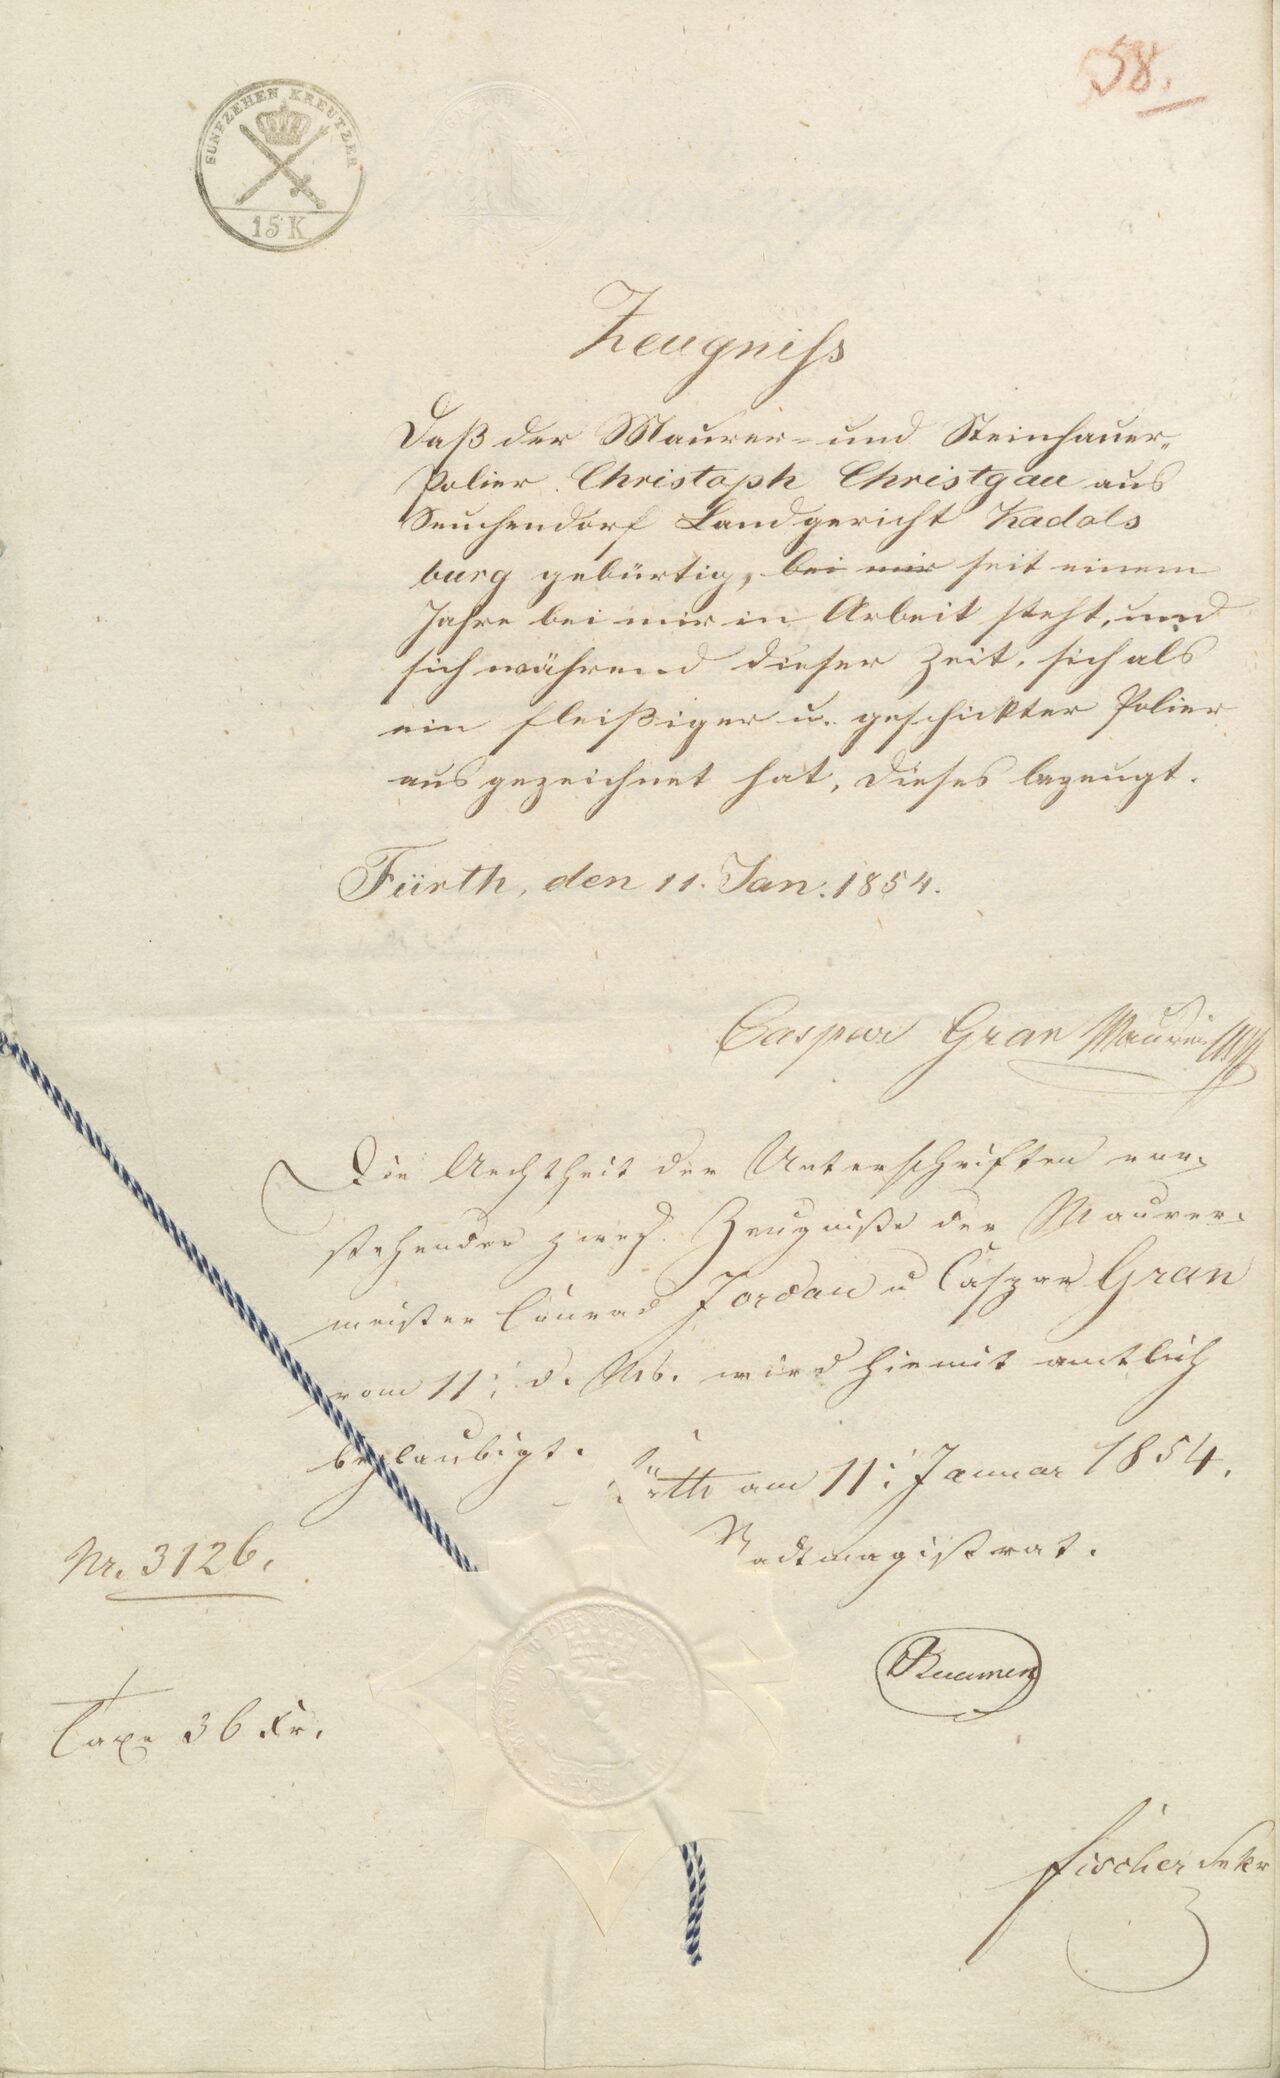 58.
FÜNFZEHEN KREUTZER
15 K
Zeugniſs
Daß der Maurer- und Steinhauer-
Polier Christoph Christgau aus
Seuchendorf Landgericht Kadols
burg gebürtig, bei mir seit einem
Jahre bei mir in Arbeit steht, und
sich während dieser Zeit, sich als
ein fleißiger u. geschickter Polier
ausgezeichnet hat, dieses bezeugt.
Fürth, den 11. Jan. 1854.
Caspar Gran Maurer
Die Aechtheit der Unterschriften vor-
stehender zwey Zeugniße der Maurer-
meister Conrad Jordan u Caspar Gran
vom 11. d. Mts. wird hiemit amtlich
beglaubigt.
Fürth am 11. Januar 1854.
Stadtmagistrat.
Nr. 3126.
Taxe 36 kr.
Fischer Sekr